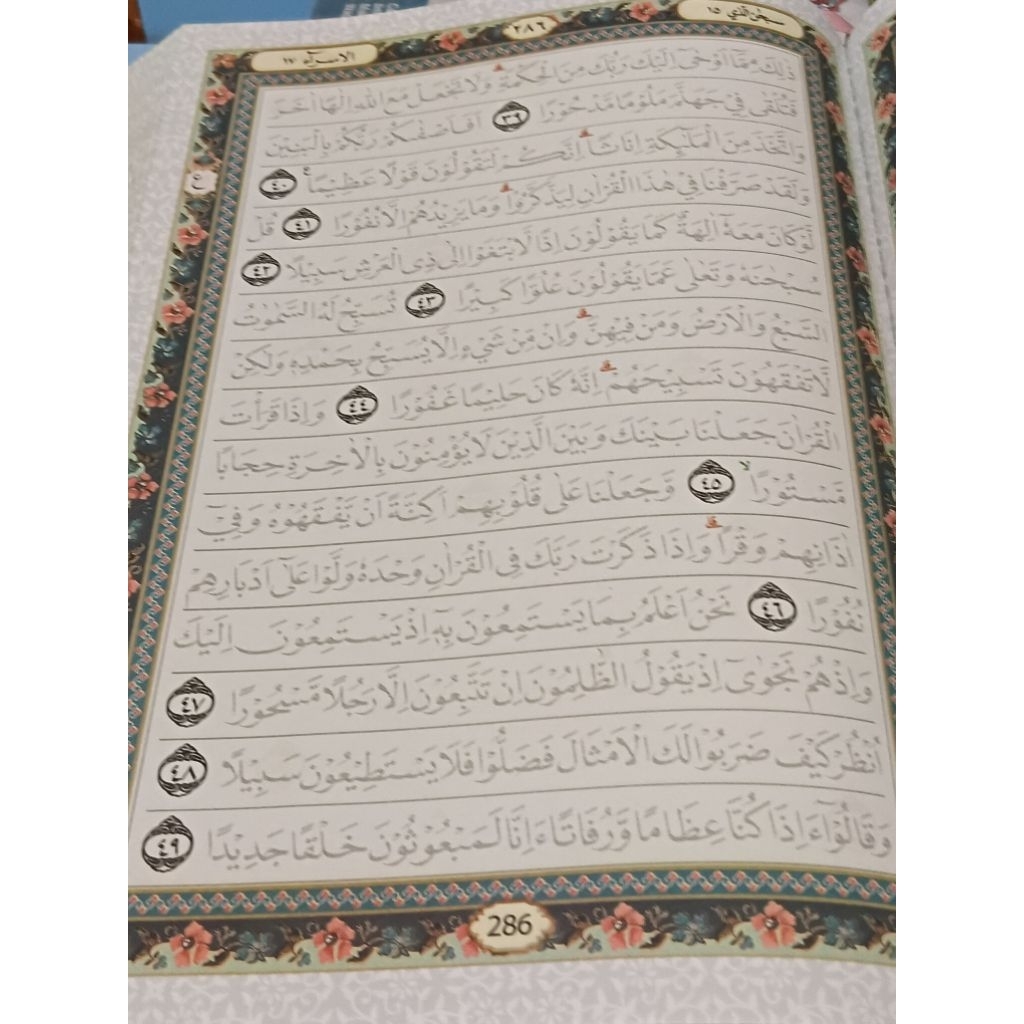 سبحن الذي ١٥
٢٨٦
الاسرآء ١٧
ذٰلِكَ مِمَّآ اَوْحٰٓى اِلَيْكَ رَبُّكَ مِنَ الْحِكْمَةِۗ وَلَا تَجْعَلْ مَعَ اللّٰهِ اِلٰهًا اٰخَرَ
فَتُلْقٰى فِيْ جَهَنَّمَ مَلُوْمًا مَّدْحُوْرًا ٣٩ اَفَاَصْفٰىكُمْ رَبُّكُمْ بِالْبَنِيْنَ
وَاتَّخَذَ مِنَ الْمَلٰۤىِٕكَةِ اِنَاثًاۗ اِنَّكُمْ لَتَقُوْلُوْنَ قَوْلًا عَظِيْمًا ࣖ ٤٠
ع
وَلَقَدْ صَرَّفْنَا فِيْ هٰذَا الْقُرْاٰنِ لِيَذَّكَّرُوْاۗ وَمَا يَزِيْدُهُمْ اِلَّا نُفُوْرًا ٤١ قُلْ
لَّوْ كَانَ مَعَهٗٓ اٰلِهَةٌ كَمَا يَقُوْلُوْنَ اِذًا لَّابْتَغَوْا اِلٰى ذِى الْعَرْشِ سَبِيْلًا ٤٢
سُبْحٰنَهٗ وَتَعٰلٰى عَمَّا يَقُوْلُوْنَ عُلُوًّا كَبِيْرًا ٤٣ تُسَبِّحُ لَهُ السَّمٰوٰتُ
السَّبْعُ وَالْاَرْضُ وَمَنْ فِيْهِنَّۗ وَاِنْ مِّنْ شَيْءٍ اِلَّا يُسَبِّحُ بِحَمْدِهٖ وَلٰكِنْ
لَّا تَفْقَهُوْنَ تَسْبِيْحَهُمْۗ اِنَّهٗ كَانَ حَلِيْمًا غَفُوْرًا ٤٤ وَاِذَا قَرَأْتَ
الْقُرْاٰنَ جَعَلْنَا بَيْنَكَ وَبَيْنَ الَّذِيْنَ لَا يُؤْمِنُوْنَ بِالْاٰخِرَةِ حِجَابًا
مَّسْتُوْرًاۙ ٤٥ وَّجَعَلْنَا عَلٰى قُلُوْبِهِمْ اَكِنَّةً اَنْ يَّفْقَهُوْهُ وَفِيْٓ
اٰذَانِهِمْ وَقْرًاۗ وَاِذَا ذَكَرْتَ رَبَّكَ فِى الْقُرْاٰنِ وَحْدَهٗ وَلَّوْا عَلٰٓى اَدْبَارِهِمْ
نُفُوْرًا ٤٦ نَحْنُ اَعْلَمُ بِمَا يَسْتَمِعُوْنَ بِهٖٓ اِذْ يَسْتَمِعُوْنَ اِلَيْكَ
وَاِذْ هُمْ نَجْوٰٓى اِذْ يَقُوْلُ الظّٰلِمُوْنَ اِنْ تَتَّبِعُوْنَ اِلَّا رَجُلًا مَّسْحُوْرًا ٤٧
اُنْظُرْ كَيْفَ ضَرَبُوْا لَكَ الْاَمْثَالَ فَضَلُّوْا فَلَا يَسْتَطِيْعُوْنَ سَبِيْلًا ٤٨
وَقَالُوْٓا ءَاِذَا كُنَّا عِظَامًا وَّرُفَاتًا ءَاِنَّا لَمَبْعُوْثُوْنَ خَلْقًا جَدِيْدًا ٤٩
286